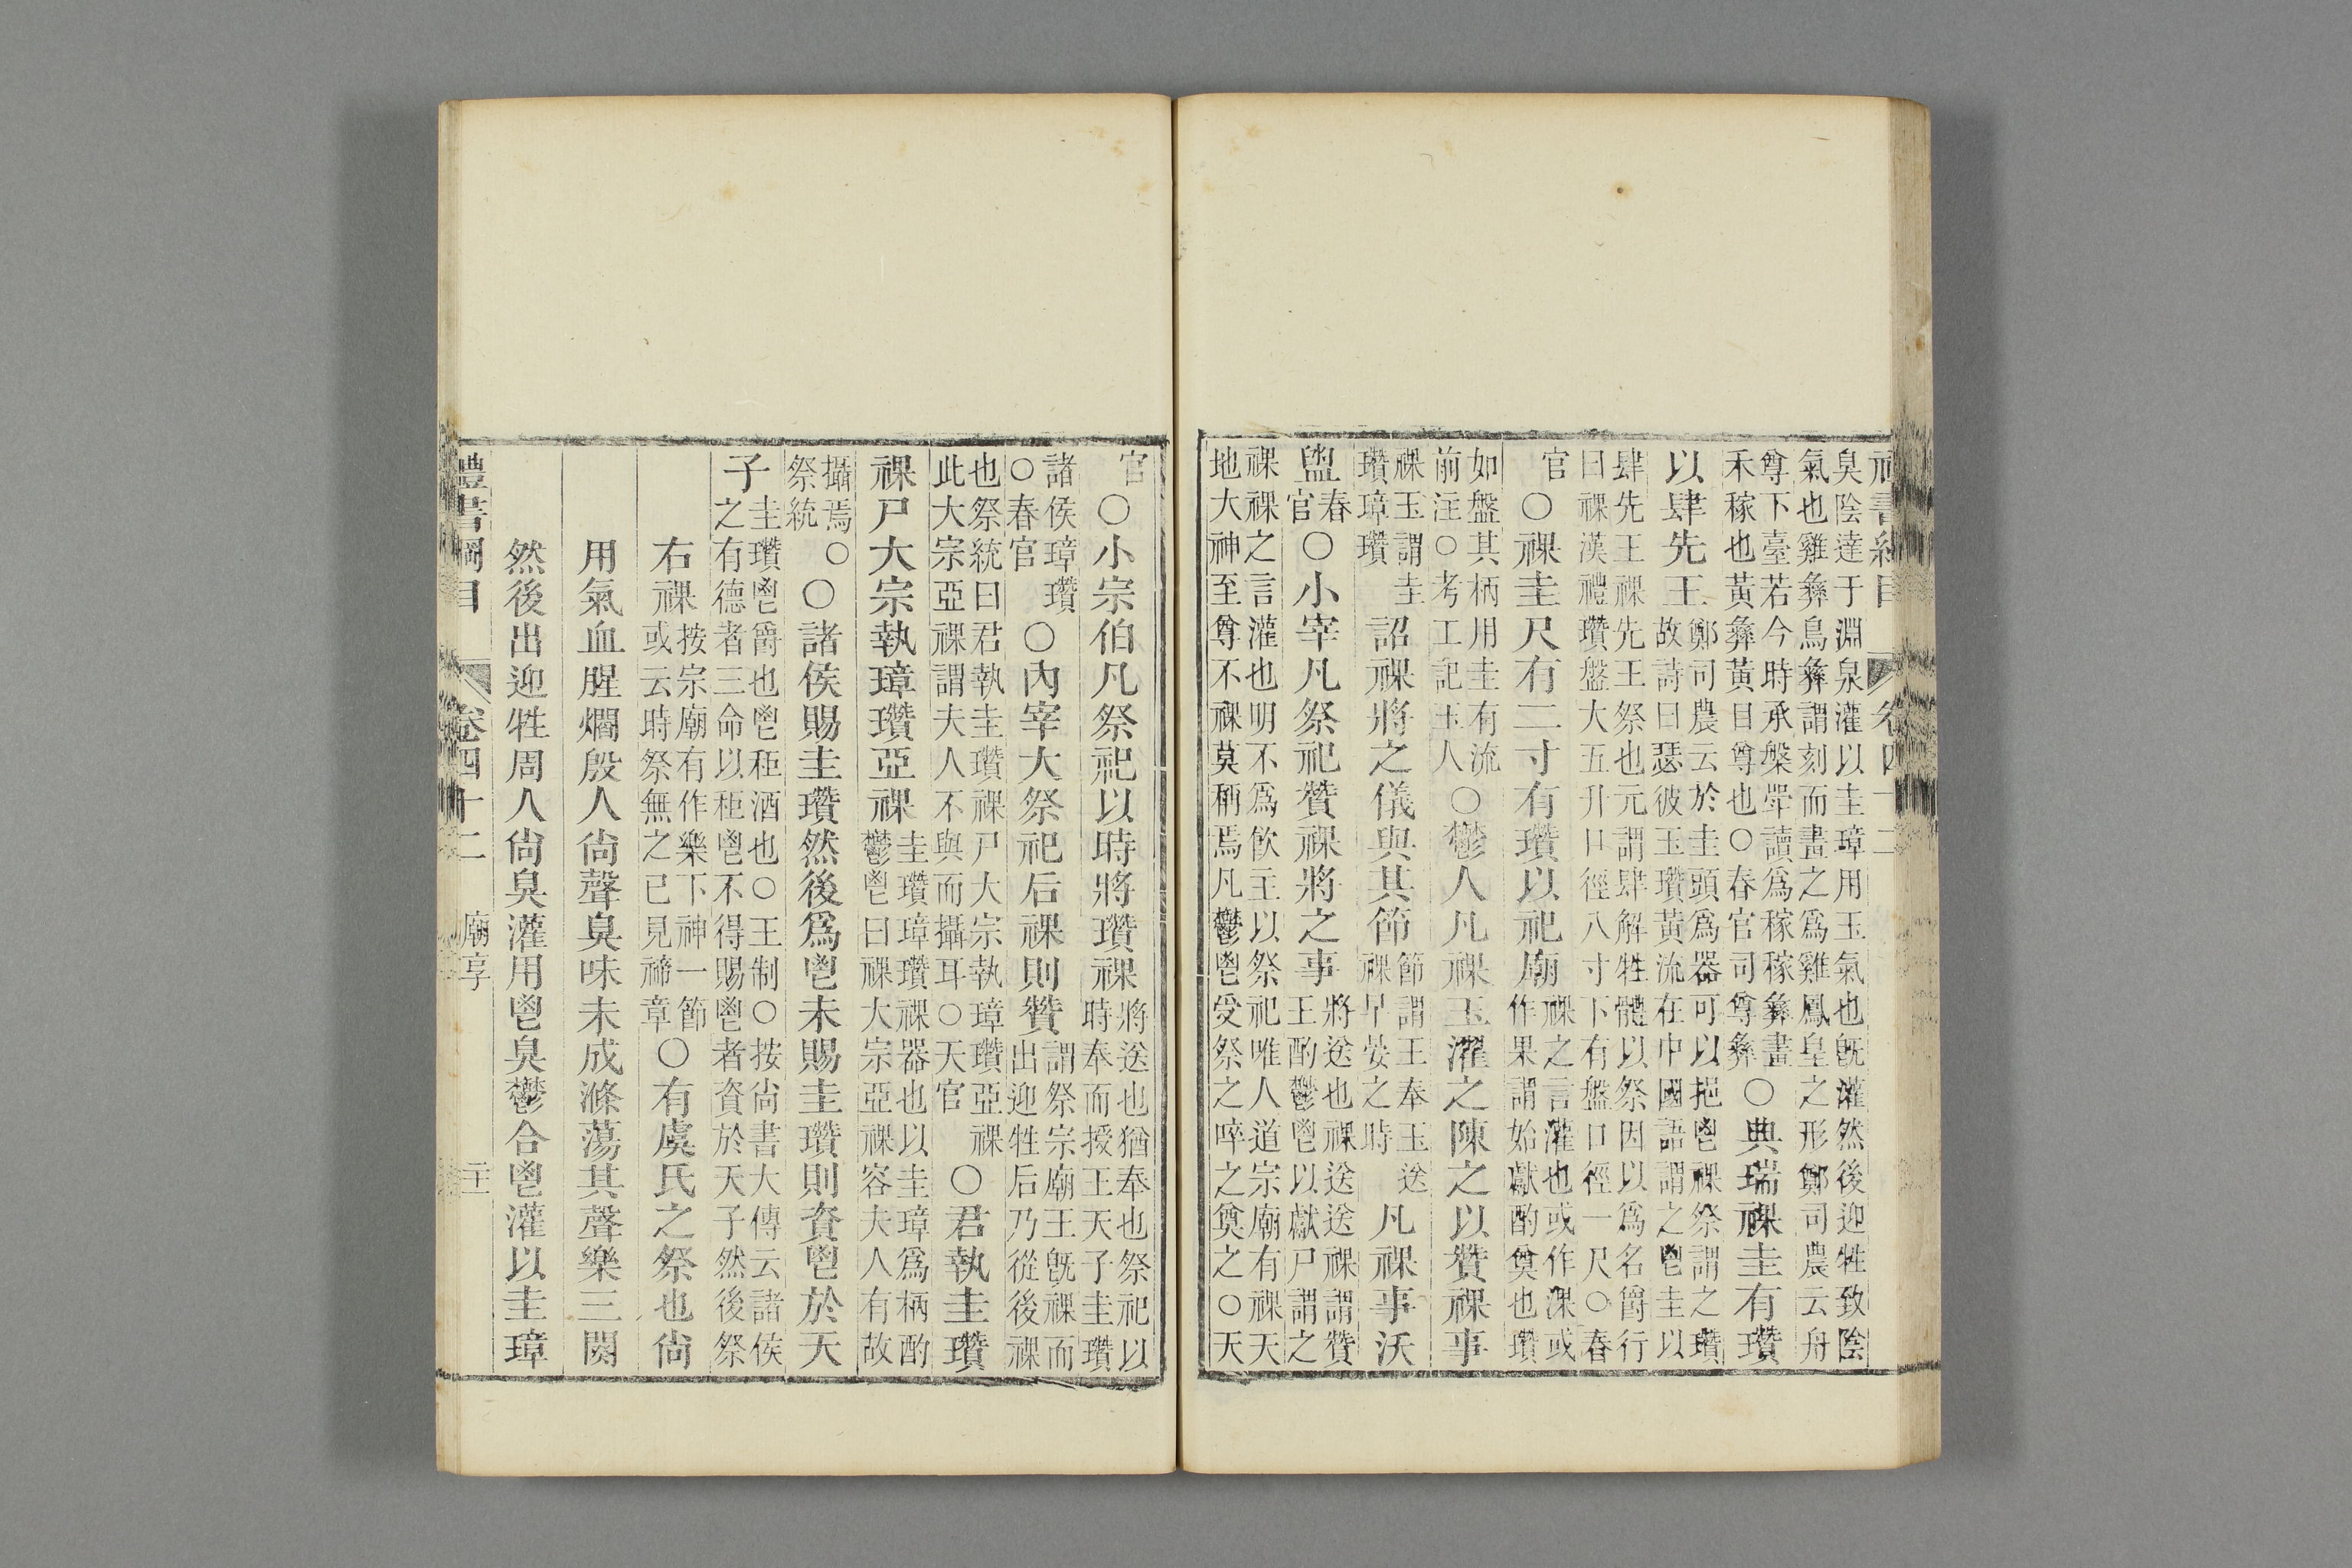 臭陰達于淵泉灌以圭璋用玉氣也旣灌然後迎牲致陰
氣也雞彝鳥彝謂刻而畫之爲雞鳳皇之形鄭司農云舟
尊下臺若今時承槃斝讀爲稼稼彝畫
禾稼也黃彝黃目尊也○春官司尊彝
○典瑞祼圭有瓚
以肆先王
鄭司農云於圭頭爲器可以挹鬯祼祭謂之瓚
故詩曰瑟彼玉瓚黃流在中國語謂之鬯圭以
肆先王祼先王祭也元謂肆解牲體以祭因以爲名爵行
曰祼漢禮瓚盤大五升口徑八寸下有盤口徑一尺○春
官
○祼圭尺有二寸有瓚以祀廟
祼之言灌也或作淉或
作果謂始獻酌奠也瓚
如盤其柄用圭有流
前注○考工記玉人
○鬱人凡祼玉濯之陳之以贊祼事
祼玉謂圭
瓚璋瓚
詔祼將之儀與其節
節謂王奉玉送
祼早晏之時
凡祼事沃
盥
春
官
○小宰凡祭祀贊祼將之事
將送也祼送送祼謂贊
王酌鬱鬯以獻尸謂之
祼祼之言灌也明不爲飮主以祭祀唯人道宗廟有祼天
地大神至尊不祼莫稱焉凡鬱鬯受祭之啐之奠之○天
官
○小宗伯凡祭祀以時將瓚祼
將送也猶奉也祭祀以
時奉而授王天子圭瓚
諸侯璋瓚
○春官
○內宰大祭祀后祼則贊
謂祭宗廟王旣祼而
出迎牲后乃從後祼
也祭統曰君執圭瓚祼尸大宗執璋瓚亞祼
此大宗亞祼謂夫人不與而攝耳○天官
○君執圭瓚
祼尸大宗執璋瓚亞祼
圭瓚璋瓚祼器也以圭璋爲柄酌
鬱鬯曰祼大宗亞祼容夫人有故
攝焉○
祭統
○諸侯賜圭瓚然後爲鬯未賜圭瓚則資鬯於天
子
圭瓚鬯爵也鬯秬酒也○王制○按尙書大傳云諸侯
之有德者三命以秬鬯不得賜鬯者資於天子然後祭
右祼
按宗廟有作樂下神一節
或云時祭無之已見禘章
○有虞氏之祭也尙
用氣血腥爓殷人尙聲臭味未成滌蕩其聲樂三闋
然後出迎牲周人尙臭灌用鬯臭鬱合鬯灌以圭璋
禮書綱目 卷四十二 廟享